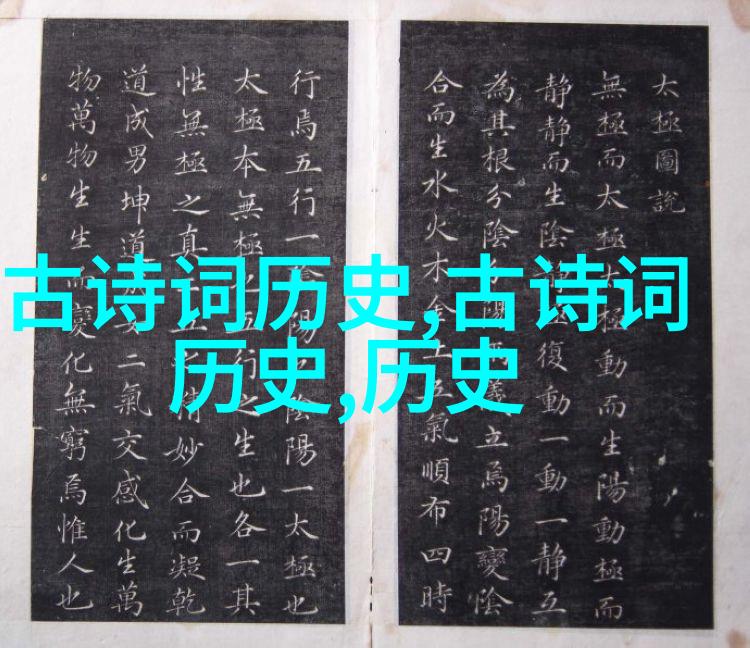 古诗词历史,古诗词
历史,历史
太極圖說
無極而太極太極動而生陽動極而
静静而生陰静復動一動一静互
為其根分陰分陽儀立焉陽變陰
合而生水火木金土五氣順布四時
行焉五行一陰陽也陰陽一太極也
太極本無極五行之生也各一其
性無極之真五精妙合而凝乾
道成男坤道女二氣交感化生萬
物萬物生生而變化無窮焉惟人也